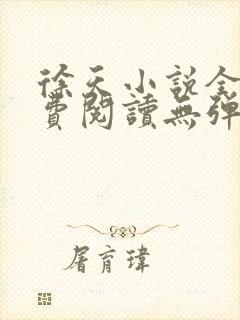 徐天小説全
費閱讀無彈
屠育瑋